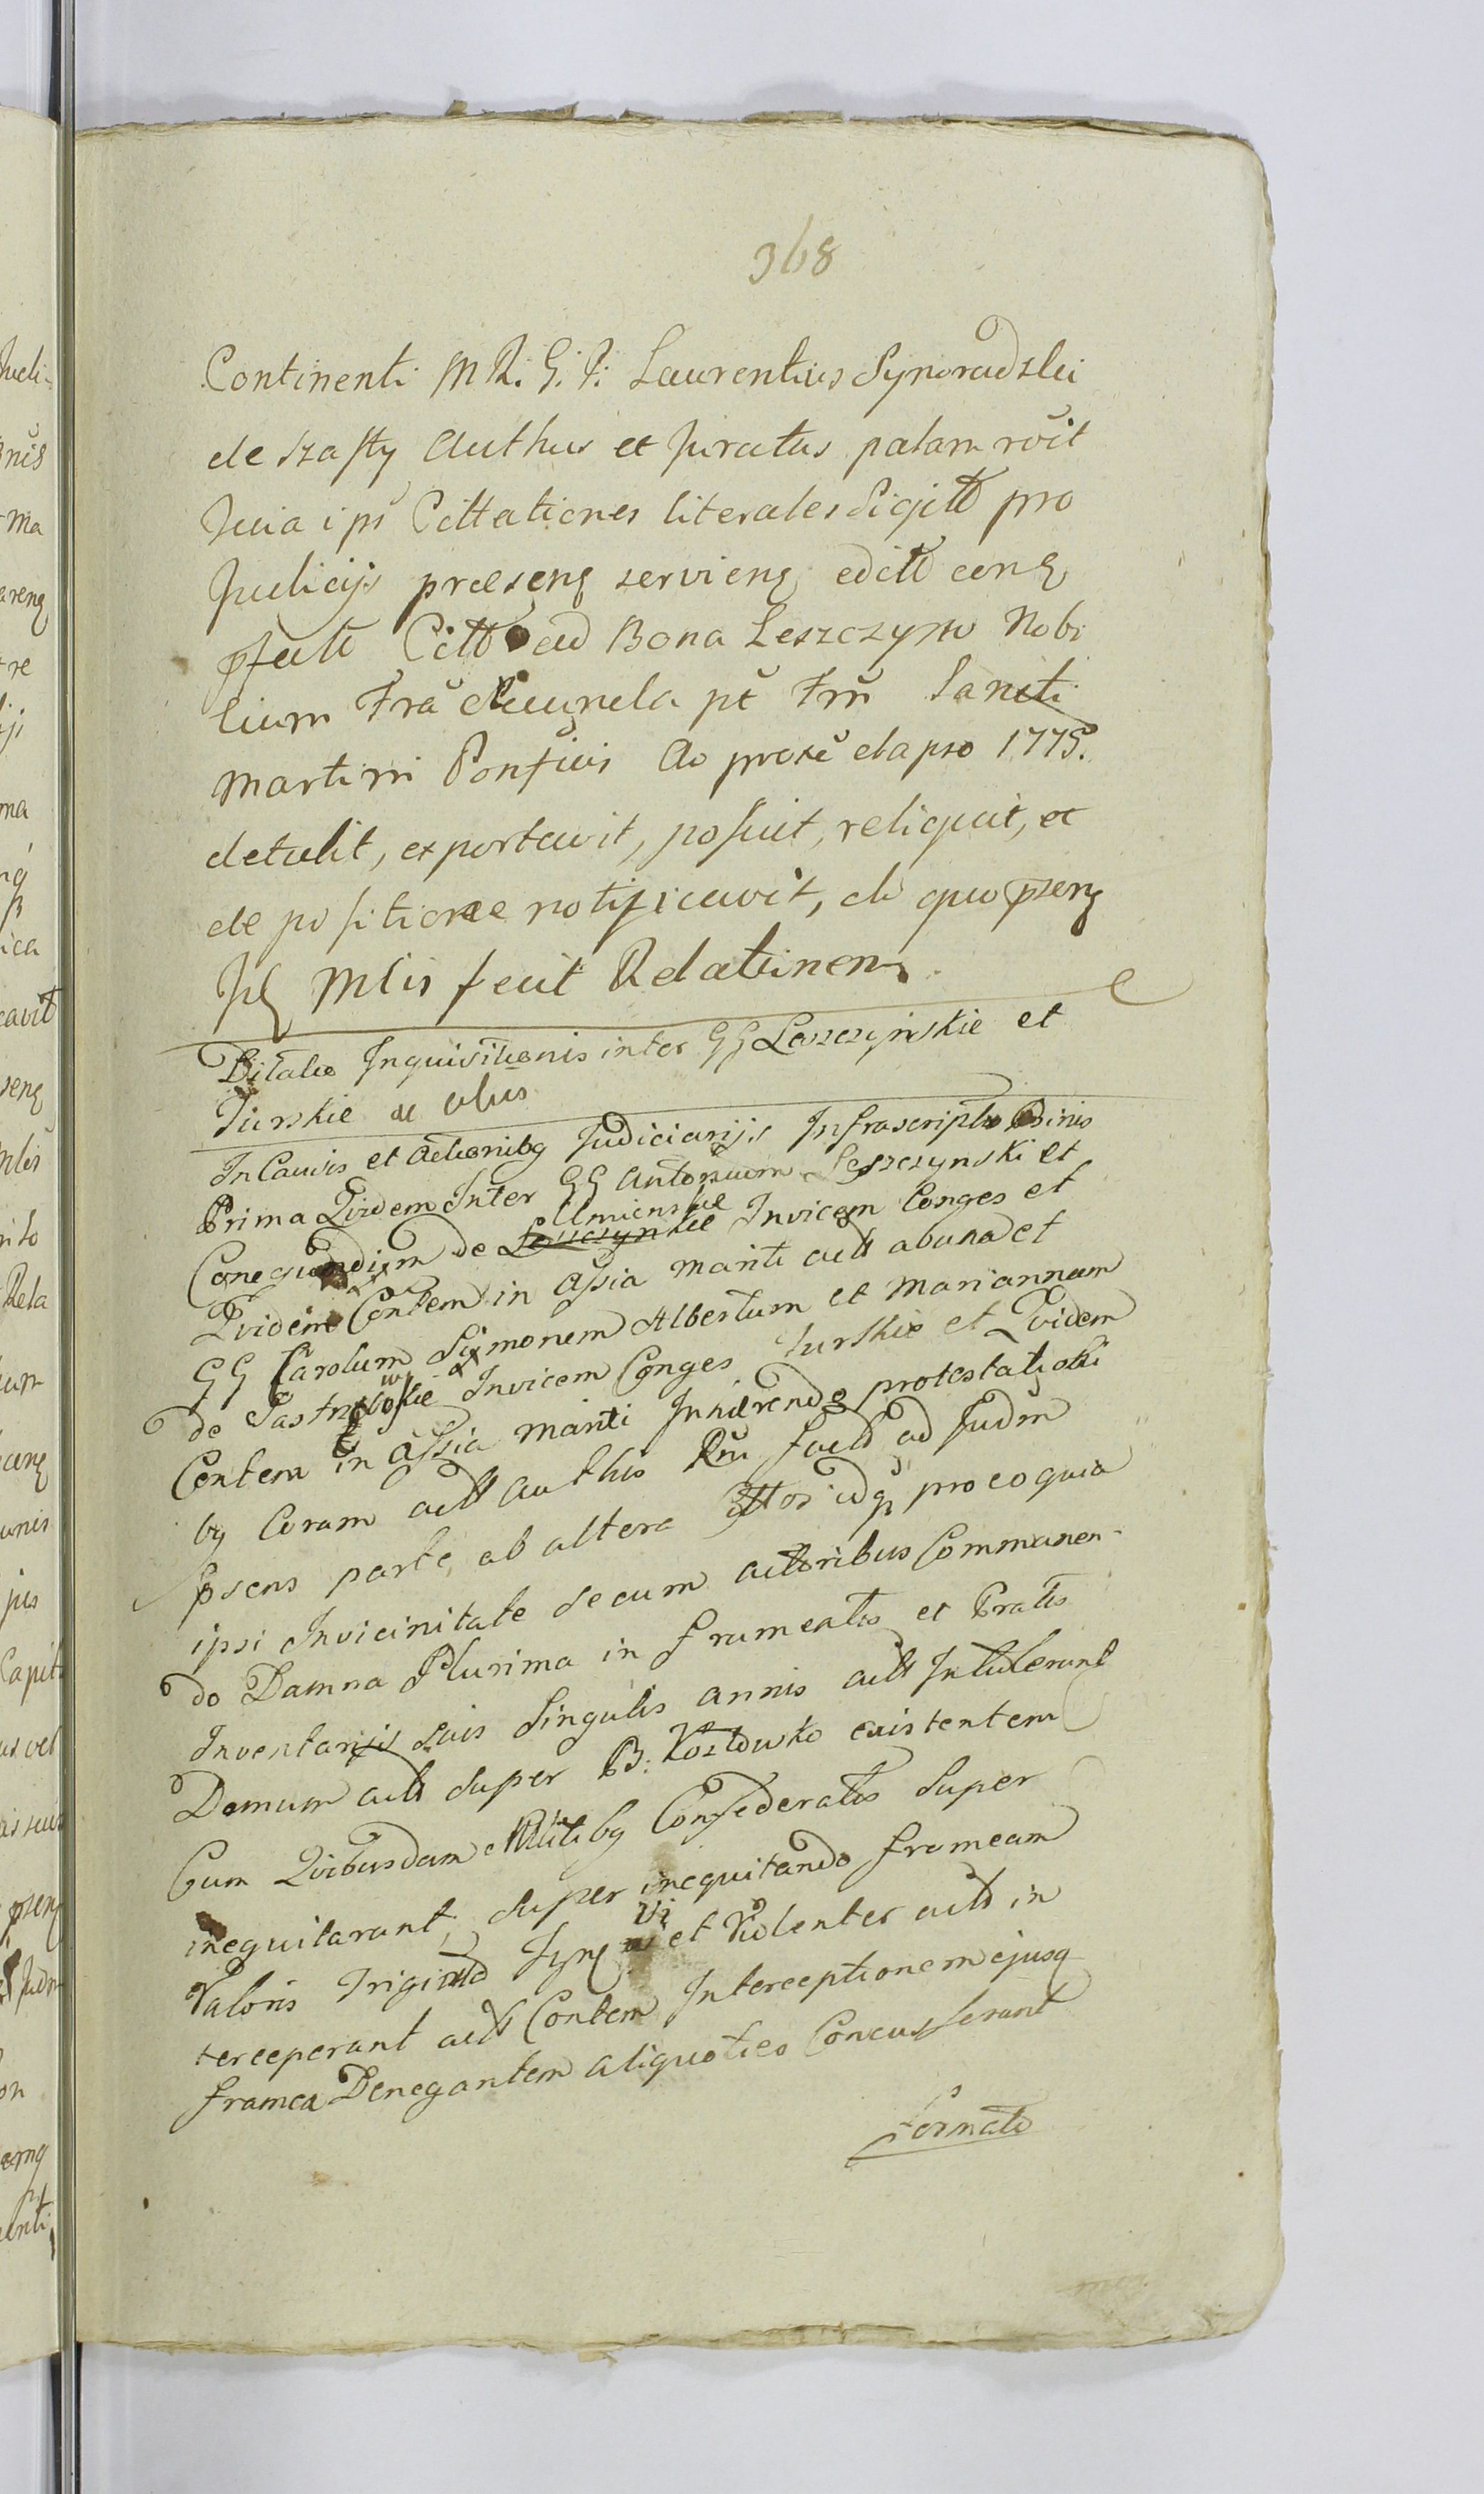 368
Continenti M R. G. P. Laurentius Synoradzki
de Szafty Authus et Juratus palam röit
quia ipse Cittationes literales Sigitt pro
Judicijs praeseng servieng editt ceng
Citt ad Bona Leszczyno Nobi
lium Fra pt Frm Sancti
Martini Ponfcis Ao proxe elapso 1775.
detulit, exportavit, posuit, reliquit, et
de positione notificavit, de quo pseng
Mlis fecit Relatinem
Dilatio Inquisitionis inter GG Leszczynskie et
Turskie ac alius
In Causis et Actionibg Judiciarijs Infrascriptis Binis
Prima Qvidem Inter GG Antonium Leszczynski et
Cunegundim de Umienskie Invicem Conges et
Qvidem Contem in Assia mariti actt abuna et
GG Carolum Simonem Albertum et Mariannam
de Invicem Conges Turskie et Qvidem
Contem in Assia mariti Inhaerendo protestationi
bg Coram actt Authis Rm factt ad Judm
psens parte, ab altera Cttos idq pro eo quia
ipsi Invicinitate secum actoribus Commanen-
do Damna Plurima in frumentis et Pratis
Inventarijs suis Singulis annis actt Intulerunt
Domum actt Super B. Kozłowko existentem
Cum Qvibusdam Militibg Confederatis Super
inequitarunt, super inequitando frameam
Valoris Triginta Tyng vi et Violenter actt in
terceperunt actt Contem Interceptionem ejusq
framea Denegantem aliquoties Concusserunt